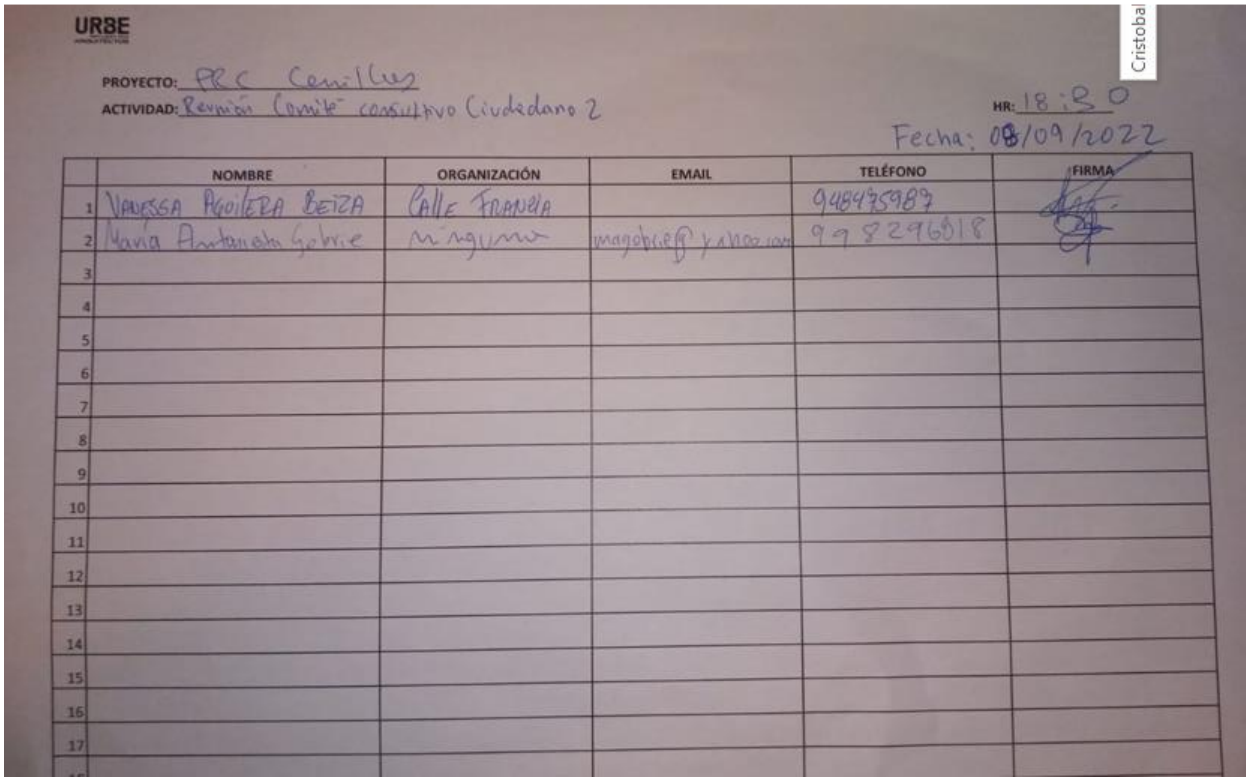 URBE
ARQUITECTOS
Cristobal
PROYECTO: PRC Cerrillos
ACTIVIDAD: Reunión Comité consultivo Ciudadano 2
HR: 18:30
Fecha: 08/09/2022
NOMBRE ORGANIZACIÓN EMAIL TELÉFONO FIRMA
1 VANESSA AGUILERA BEIZA CALLE FRANCIA 948475987
2 María Antonieta Gobrie ninguna 998296818
3
4
5
6
7
8
9
10
11
12
13
14
15
16
17